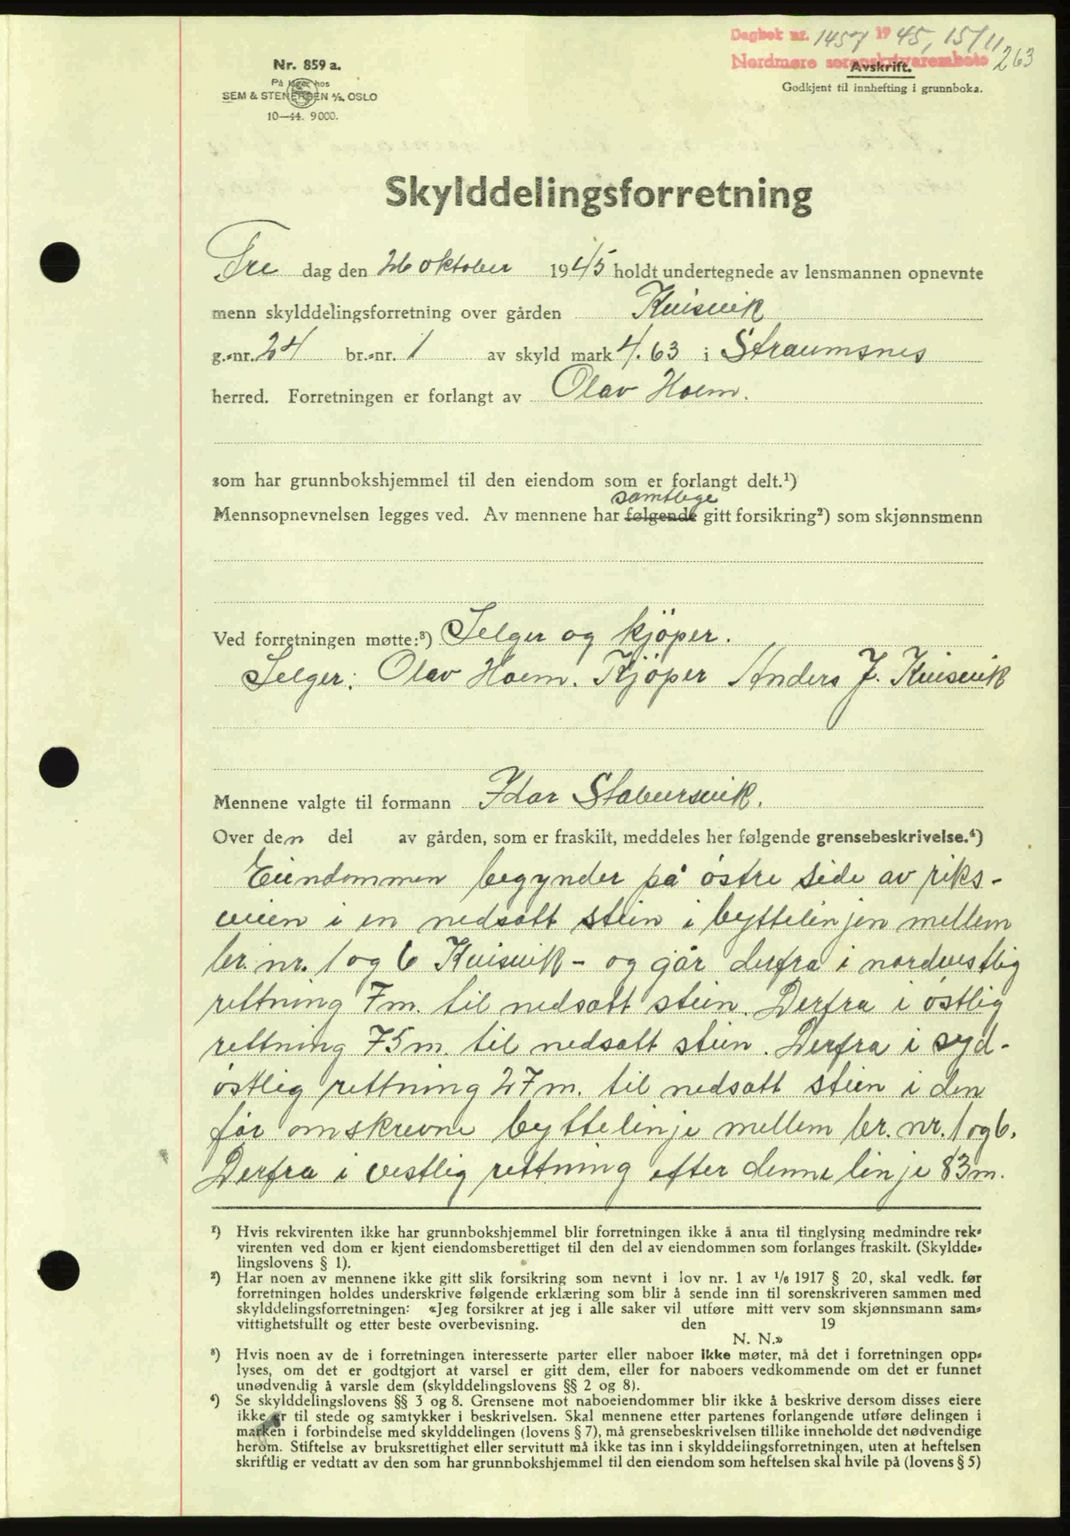 Dagbok nr. 1457 1945, 15/11
Nordmøre sorenskrivarembete 263
Nr. 859 a.
På lager hos
SEM & STENERSEN A/S, OSLO
10—44. 9000.
Avskrift.
Godkjent til innhefting i grunnboka.
Skylddelingsforretning
Fre dag den 26 oktober 1945 holdt undertegnede av lensmannen opnevnte
menn skylddelingsforretning over gården Kvisvik
g.-nr. 24 br.-nr. 1 av skyld mark 4.63 i Straumsnes
herred. Forretningen er forlangt av Olav Hoem.
som har grunnbokshjemmel til den eiendom som er forlangt delt.¹)
samtlege
Mennsopnevnelsen legges ved. Av mennene har følgende gitt forsikring²) som skjønnsmenn
Ved forretningen møtte:³) Selger og kjöper.
Selger: Olav Hoem. Kjöper Anders J. Kvisvik
Mennene valgte til formann Idar Stabursvik.
Over den del av gården, som er fraskilt, meddeles her følgende grensebeskrivelse.⁴)
Eiendommen begynder på östre side av riks-
veien i en nedsatt stein i byttelinjen mellem
br. nr. 1 og 6 Kvisvik - og går derfra i nordvestlig
rettning 7 m. til nedsatt stein. Derfra i östlig
rettning 75 m. til nedsatt stein. Derfra i syd-
östlig rettning 27 m. til nedsatt stein i den
för omskrevne byttelinje mellem br. nr. 1 og 6.
Derfra i vestlig rettning efter denne linje 83 m.
¹) Hvis rekvirenten ikke har grunnbokshjemmel blir forretningen ikke å anta til tinglysing medmindre rek-
virenten ved dom er kjent eiendomsberettiget til den del av eiendommen som forlanges fraskilt. (Skyldde-
lingslovens § 1).
²) Har noen av mennene ikke gitt slik forsikring som nevnt i lov nr. 1 av 1/6 1917 § 20, skal vedk. før
forretningen holdes underskrive følgende erklæring som blir å sende inn til sorenskriveren sammen med
skylddelingsforretningen: «Jeg forsikrer at jeg i alle saker vil utføre mitt verv som skjønnsmann sam-
vittighetsfullt og etter beste overbevisning. den 19
N. N.»
³) Hvis noen av de i forretningen interesserte parter eller naboer ikke møter, må det i forretningen opp-
lyses, om det er godtgjort at varsel er gitt dem, eller for naboers vedkommende om det er funnet
unødvendig å varsle dem (skylddelingslovens §§ 2 og 8).
⁴) Se skylddelingslovens §§ 3 og 8. Grensene mot naboeiendommer blir ikke å beskrive dersom disses eiere
ikke er til stede og samtykker i beskrivelsen. Skal mennene etter partenes forlangende utføre delingen i
marken i forbindelse med skylddelingen (lovens § 7), må grensebeskrivelsen tillike inneholde det nødvendige
herom. Stiftelse av bruksrettighet eller servitutt må ikke tas inn i skylddelingsforretningen, uten at heftelsen
skriftlig er vedtatt av den som har grunnbokshjemmel til den eiendom som heftelsen skal hvile på (lovens § 5)